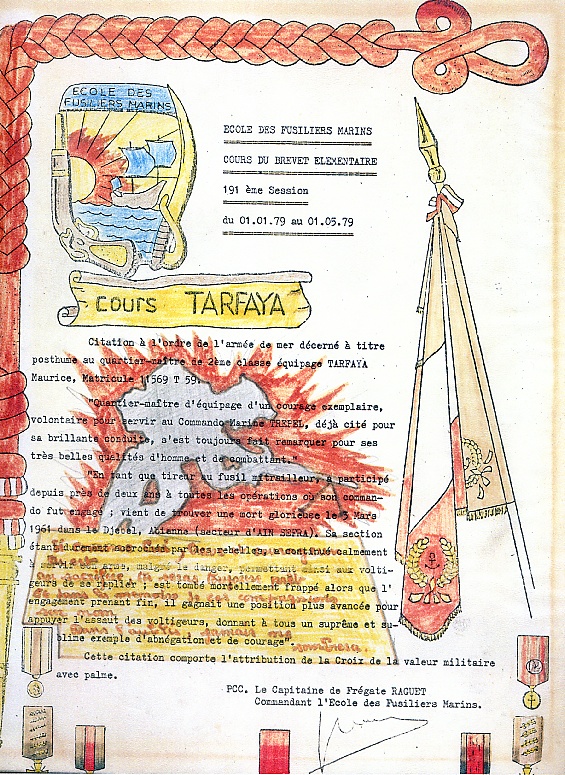 ECOLE DES
FUSILIERS MARINS
ECOLE DES FUSILIERS MARINS
COURS DU BREVET ELEMENTAIRE
191 ème Session
du 01.01.79 au 01.05.79
COURS TARFAYA
Citation à l'ordre de l'armée de mer décerné à titre
posthume au quartier-maître de 2ème classe équipage TARFAYA
Maurice, Matricule 11569 T 59.
"Quartier-maître d'équipage d'un courage exemplaire,
volontaire pour servir au Commando Marine TREPEL, déjà cité pour
sa brillante conduite, s'est toujours fait remarquer pour ses
très belles qualités d'homme et de combattant."
"En tant que tireur au fusil mitrailleur, a participé
depuis près de deux ans à toutes les opérations où son comman-
do fut engagé ; vient de trouver une mort glorieuse le 3 Mars
1961 dans le Djebel, (secteur d'AIN SEFRA). Sa section
étant durement accrochée par les rebelles, a continué calmement
à servir son arme, malgré le danger, permettant ainsi aux volti-
geurs de se replier ; est tombé mortellement frappé alors que l'
engagement prenant fin, il gagnait une position plus avancée pour
appuyer l'assaut des voltigeurs, donnant à tous un suprême et su-
blime exemple d'abnégation et de courage".
Cette citation comporte l'attribution de la Croix de la valeur militaire
avec palme.
PCC. Le Capitaine de Frégate RAGUET
Commandant l'Ecole des Fusiliers Marins.